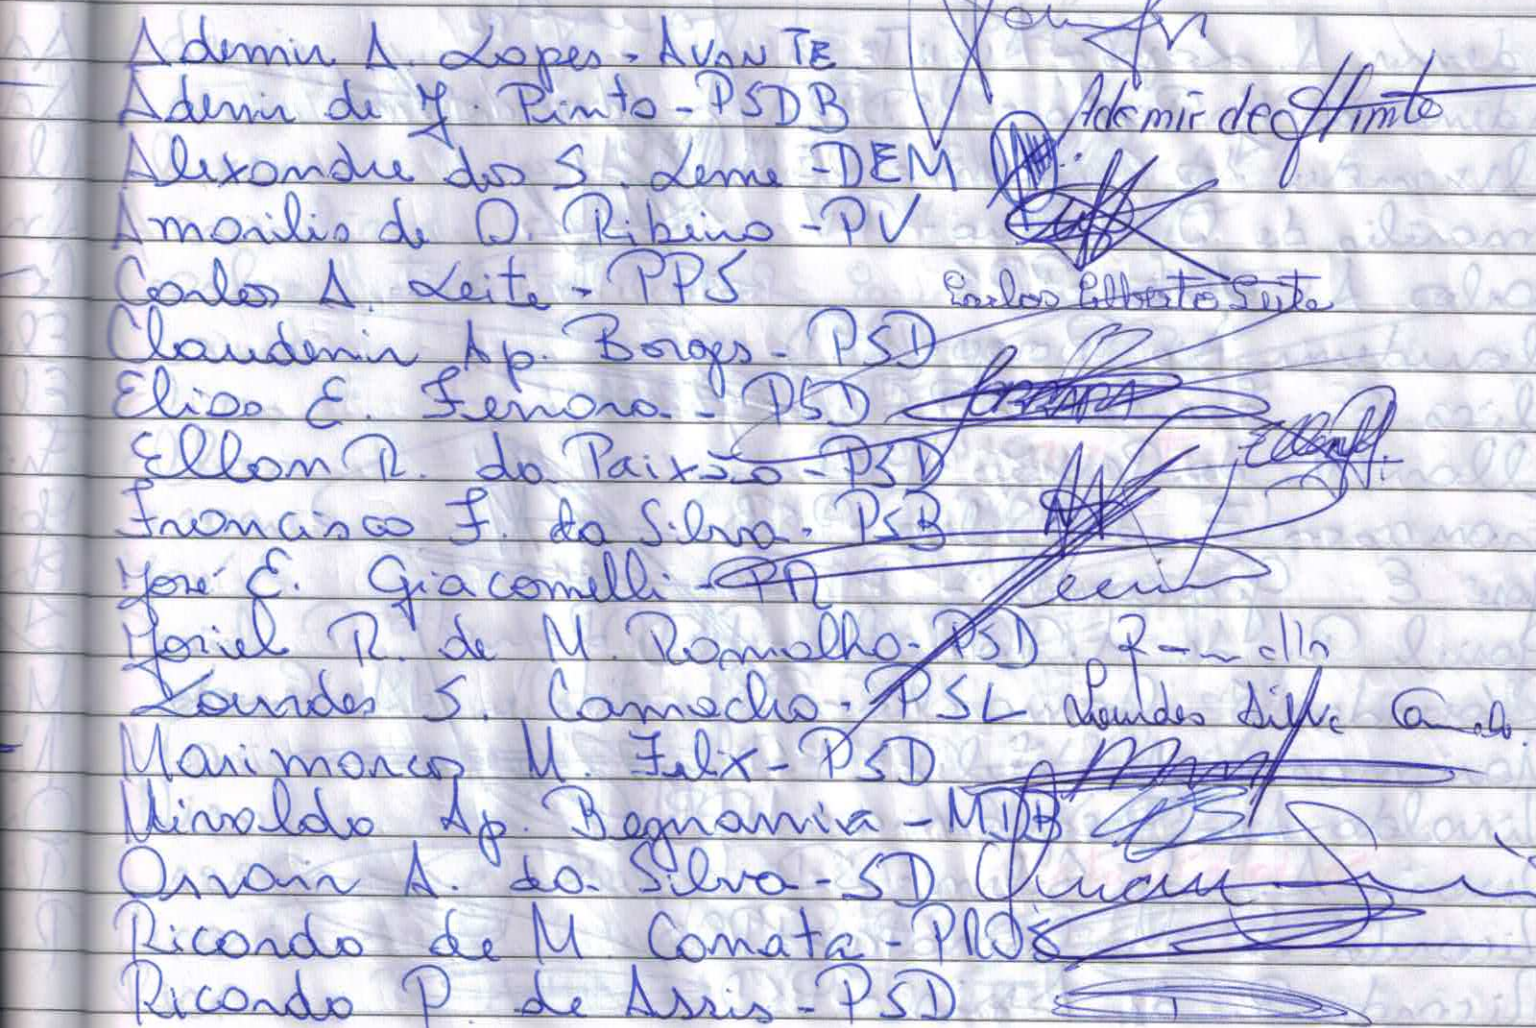 Ademir A. Lopes - AVANTE
Ademir de J. Pinto - PSDB Ademir de J Pinto
Alexandre dos S. Leme - DEM
Amarilis de O. Ribeiro - PV
Carlos A. Leite - PPS Carlos Alberto Leite
Claudemir Ap. Borges - PSD
Elisa E. Ferrara - PSD
Ellson R. da Paixão - PSD
Francisco F. da Silva - PSB
José E. Giacomelli - PR
Josiel R. de M. Ramalho - PSD
Lourdes S. Camacho - PSL Lourdes Silva Camacho
Marimarcos M. Felix - PSD
Mivaldo Ap. Begnamia - MDB
Osvair A. da Silva - SD
Ricardo de M. Canata - PROS
Ricardo P. de Assis - PSD